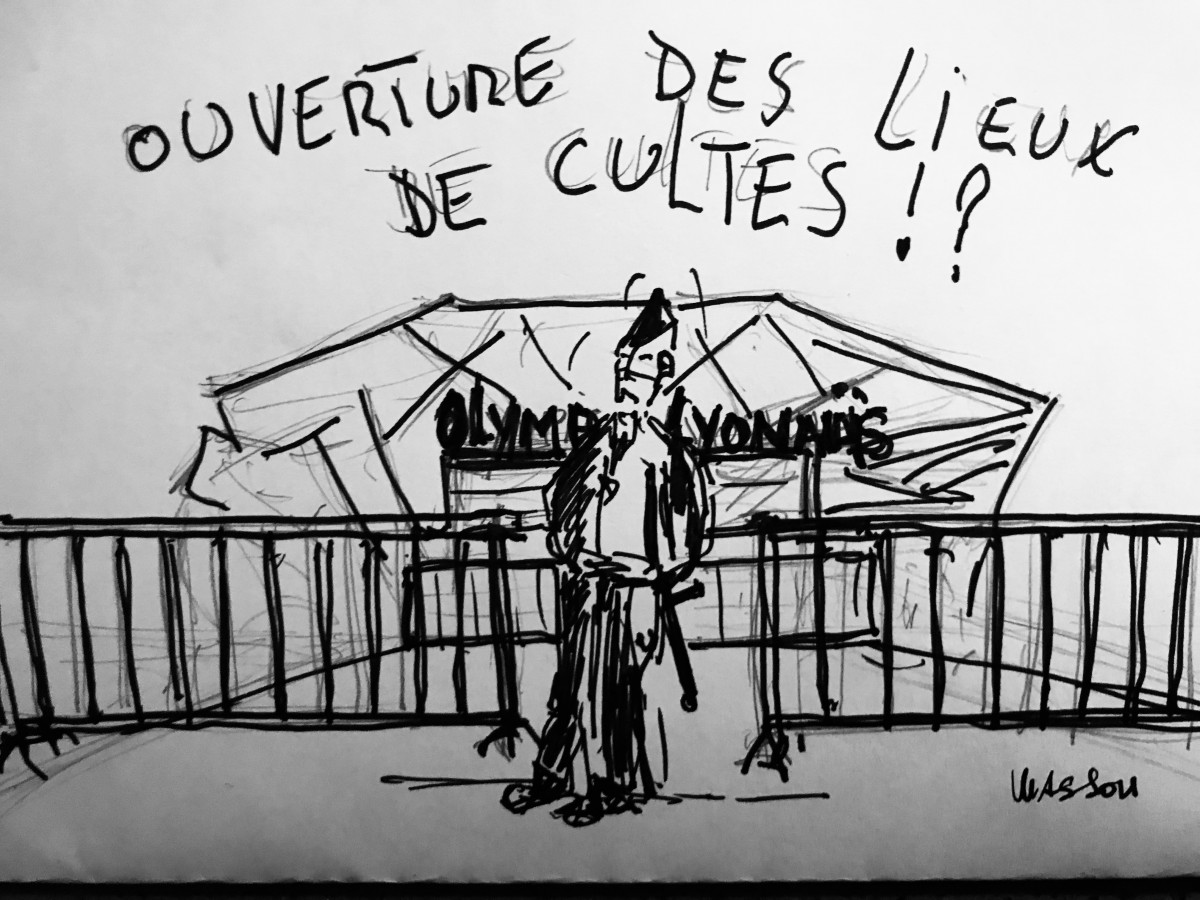 OUVERTURE DES LiEUX
DE CULTES !?
OLYMP LYONNAIS
MASSOU